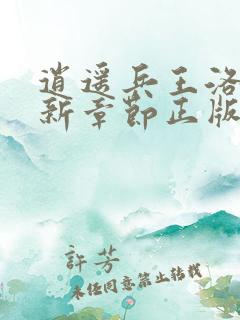 逍遥兵王洛
新章节正版
許芳
未经同意禁止转载